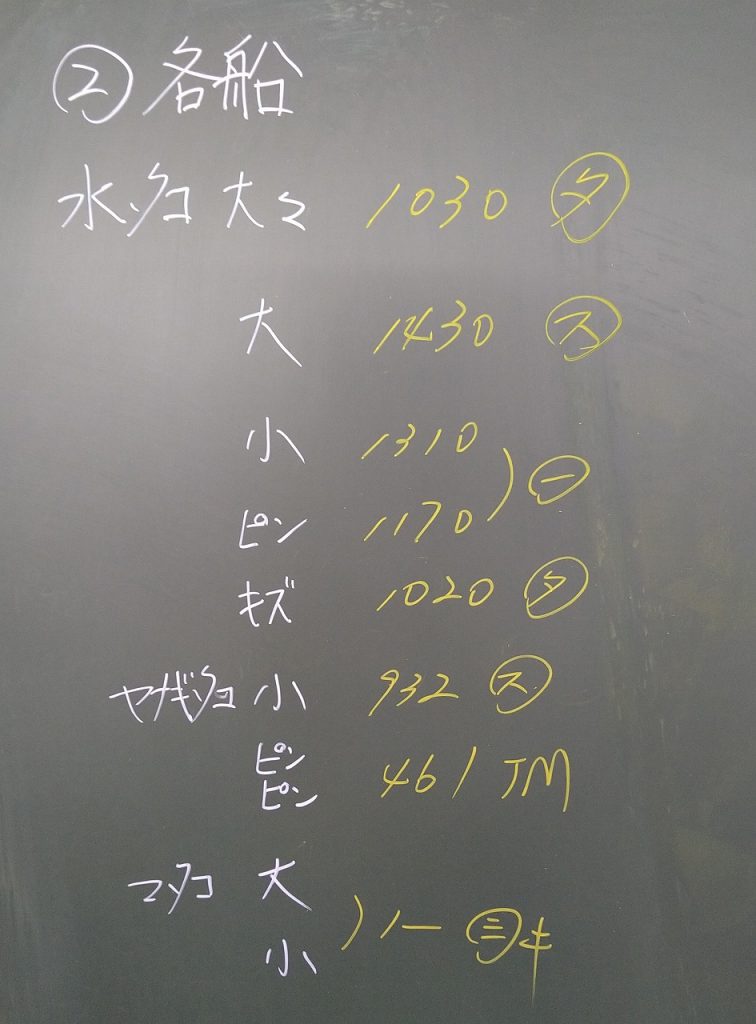 ② 各船
水タコ 大々 1030 タ
大 1430 ス
小 1310
ピン 1170 ) 一
キズ 1020 タ
ヤナギタコ 小 932 ス
ピンピン 461 JM
マタコ 大
小 ) 1一 三キ